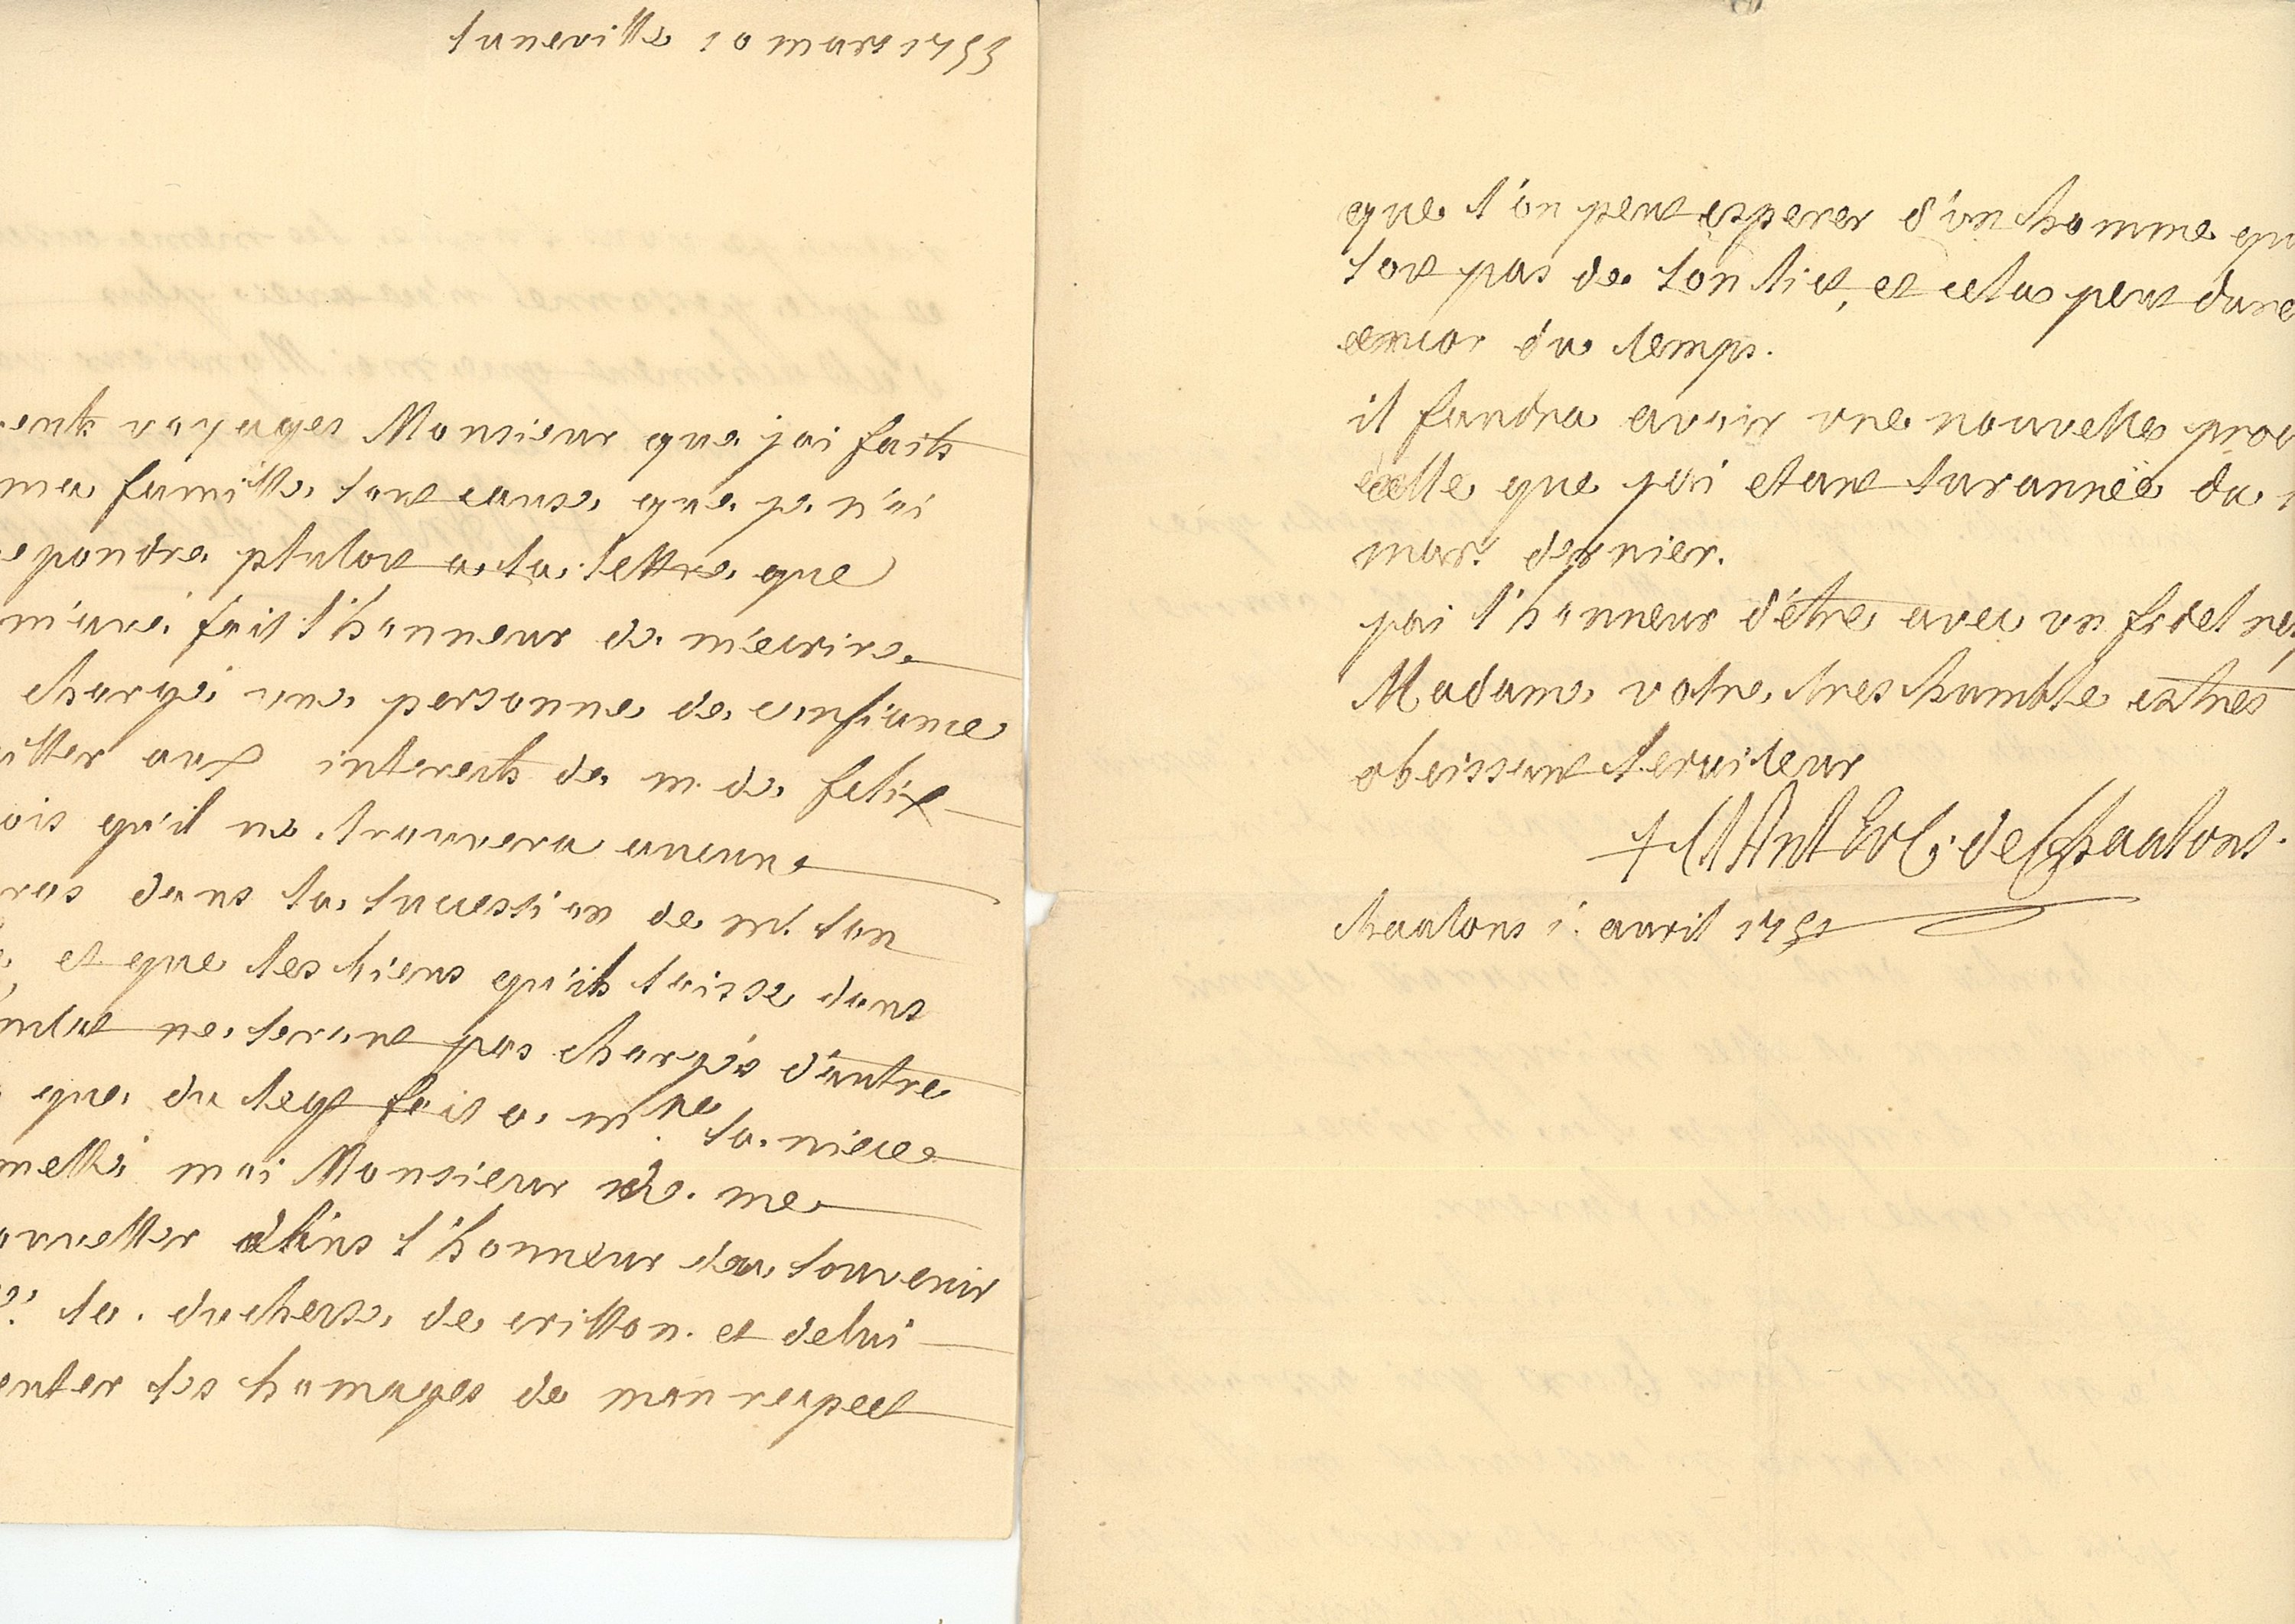 luneville 10 mars 1753
voyages Monsieur que j'ai faits
ma famille sont cause que je n'ai
epondre plutost a la lettre que
m'avé fait l'honneur de m'ecrire
chargé une personne de confiance
aux interests de m. de felix
ois qu'il ne trouvera aucun
dans la sucession de m. son
et que les biens qu'ils laisse dans
ne seront pas chargés d'autre
que du legs fait a m.lle sa niece
metté moi Monsieur de me
ouveller dans l'honneur du souvenir
la duchesse de crillon. et de lui
enter les homages de mon respect
que l'on peut esperer d'un homme qu
sort pas de son lict, et cela peut dure
encor du temps.
il faudra avoir une nouvelle proc
celle que j'ai etant surannée du
mars dernier.
j'ai l'honneur d'être avec un fidel res
Madame votre tres humble et tres
obeissant serviteur
+ Cl Ant Ev. C. de Chaalons.
chaalons 1. avril 1751